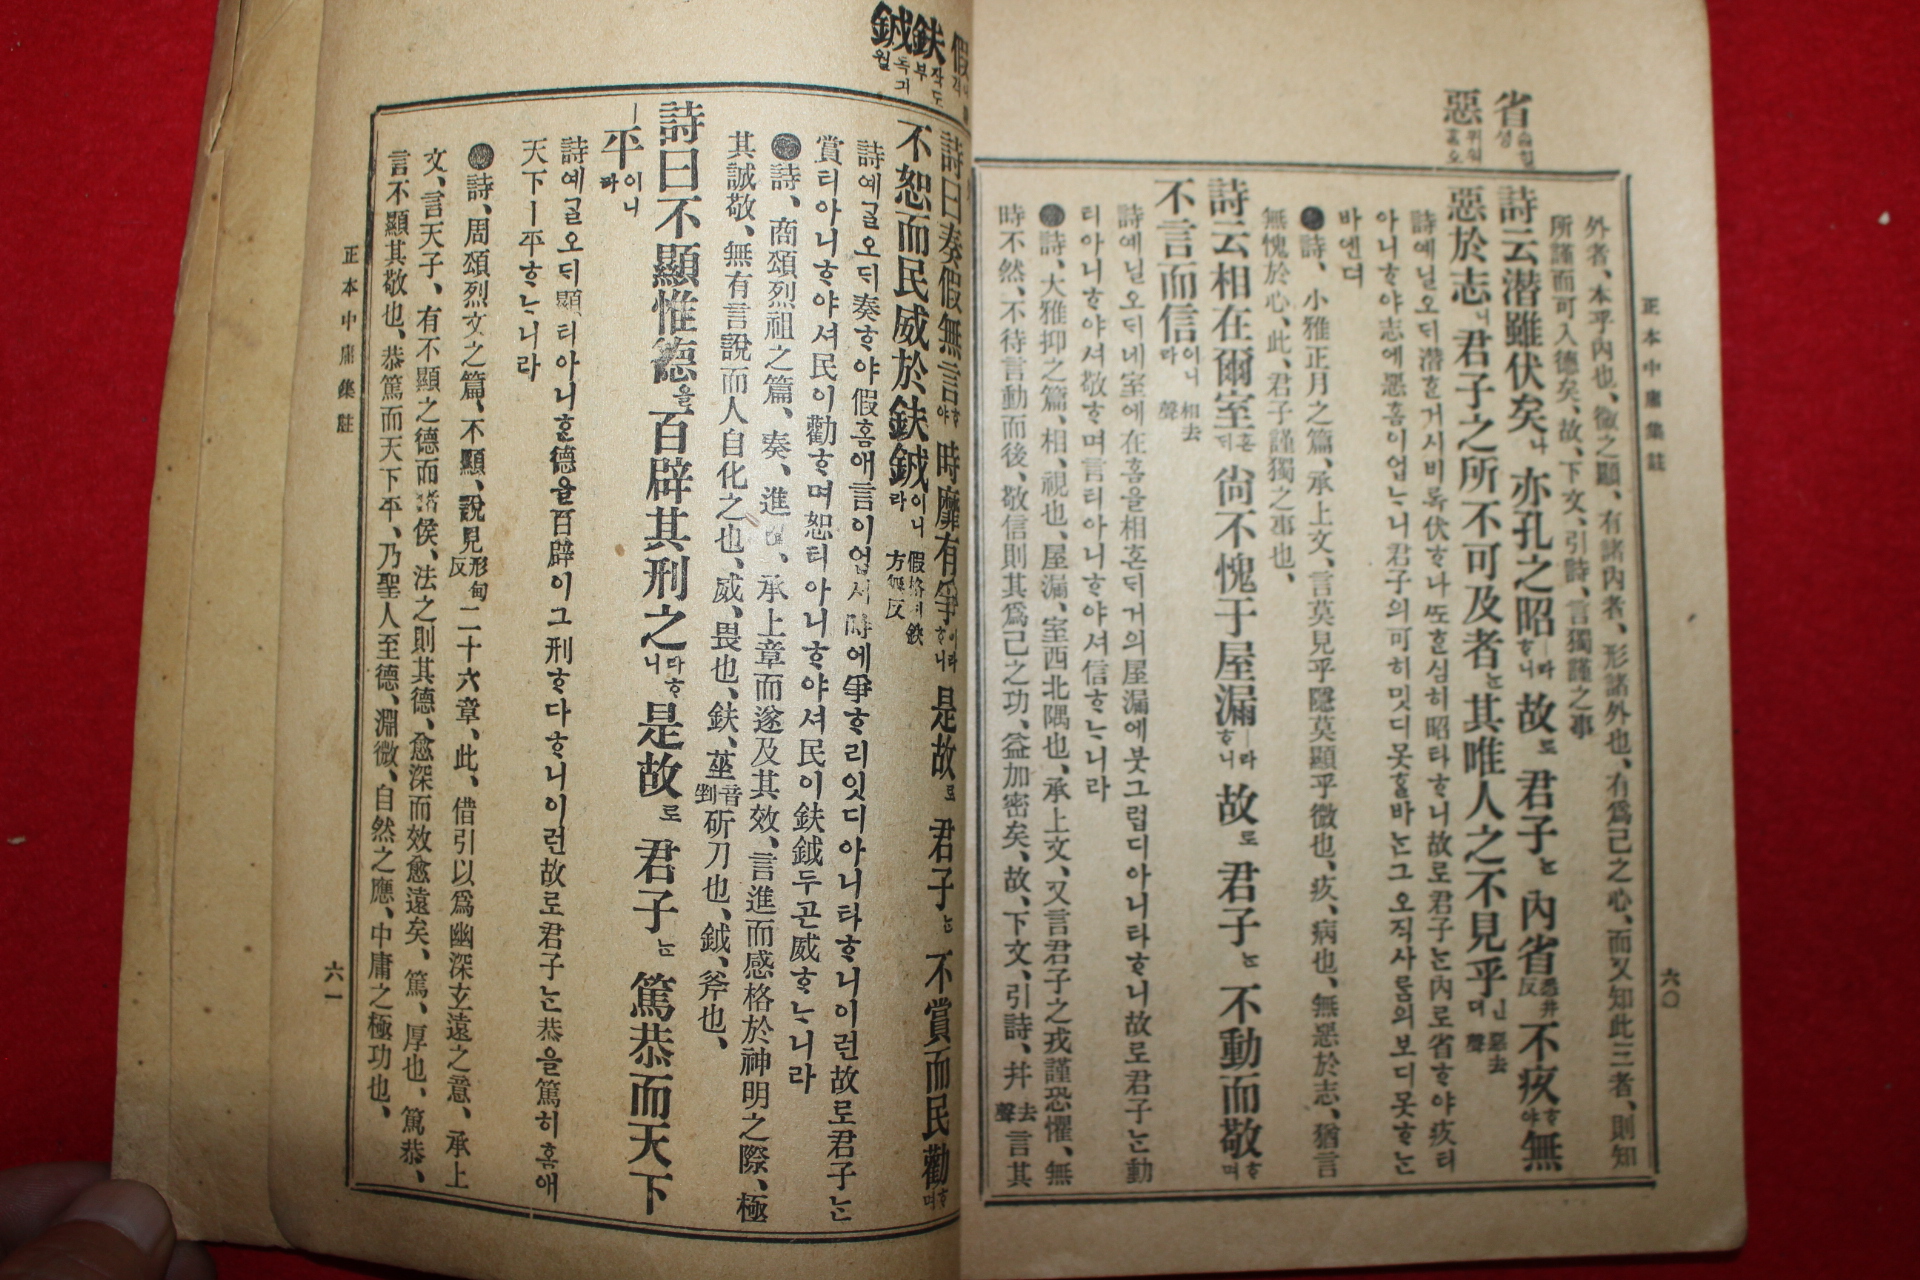 省 술필 성
惡 뮈워 홈오
正本中庸集註
六〇
外者、本乎內也、微之顯、有諸內者、形諸外也、有爲己之心、而又知此三者、則知
所謹而可入德矣、故、下文、引詩、言獨謹之事
詩云潜雖伏矣나 亦孔之昭ㅣ라ᄒᆞ니 故로 君子ᄂᆞᆫ 內省悉井反不疚ᄒᆞ야 無
惡於志니 君子之所不可及者ᄂᆞᆫ 其唯人之不見乎ㅣᆫ뎌 惡去聲
詩예닐오ᄃᆡ潜ᄒᆞᆫ거시비록伏ᄒᆞ나ᄯᅩᄒᆞᆫ심히昭타ᄒᆞ니故로君子ᄂᆞᆫ內로省ᄒᆞ야疚티
아니ᄒᆞ야志예惡홈이업ᄂᆞ니君子의可히밋디못ᄒᆞᆯ바ᄂᆞᆫ그오직사ᄅᆞᆷ의보디못ᄒᆞᄂᆞᆫ
바엔뎌
詩、小雅正月之篇、承上文、言莫見乎隱莫顯乎微也、疚、病也、無惡於志、猶言
無愧於心、此、君子謹獨之事也、
詩云相在爾室혼ᄃᆡ 尙不愧于屋漏ㅣ라ᄒᆞ니 故로 君子ᄂᆞᆫ 不動而敬ᄒᆞ며
不言而信이니라 相去聲
詩예닐오ᄃᆡ네室에在홈을相혼ᄃᆡ거의屋漏에붓그럽디아니타ᄒᆞ니故로君子ᄂᆞᆫ動
티아니ᄒᆞ야셔敬ᄒᆞ며言티아니ᄒᆞ야셔信ᄒᆞᄂᆞ니라
詩、大雅抑之篇、相、視也、屋漏、室西北隅也、承上文、又言君子之戎謹恐懼、無
時不然、不待言動而後、敬信則其爲己之功、益加密矣、故、下文、引詩、幷去聲言其
假
鈇 작도부
鉞 독기월
詩曰奏假無言ᄒᆞ야 時靡有爭이라ᄒᆞ니 是故로 君子ᄂᆞᆫ 不賞而民勸ᄒᆞ며
不怒而民威於鈇鉞이니라 假格 鈇方無反
詩예ᄀᆞᆯ오ᄃᆡ奏ᄒᆞ야假홈애言이업셔時에爭ᄒᆞ리잇디아니타ᄒᆞ니이런故로君子ᄂᆞᆫ
賞티아니ᄒᆞ야셔民이勸ᄒᆞ며怒티아니ᄒᆞ야셔民이鈇鉞두곤威ᄒᆞᄂᆞ니라
詩、商頌烈祖之篇、奏、進、承上章而遂及其效、言進而感格於神明之際、極
其誠敬、無有言說而人自化之也、威、畏也、鈇、莝音剉斫刀也、鉞、斧也、
詩曰不顯惟德을 百辟其刑之라ᄒᆞ니 是故로 君子ᄂᆞᆫ 篤恭而天下
ㅣ平이니라
詩예ᄀᆞᆯ오ᄃᆡ顯티아니ᄒᆞᆫ德을百辟이그刑ᄒᆞ다ᄒᆞ니이런故로君子ᄂᆞᆫ恭을篤히홈애
天下ㅣ平ᄒᆞᄂᆞ니라
詩、周頌烈文之篇、不顯、說見形甸反二十六章、此、借引以爲幽深玄遠之意、承上
文、言天子、有不顯之德而諸侯、法之則其德、愈深而效愈遠矣、篤、厚也、篤恭、
言不顯其敬也、恭篤而天下平、乃聖人至德、淵微、自然之應、中庸之極功也、
正本中庸集註
六一